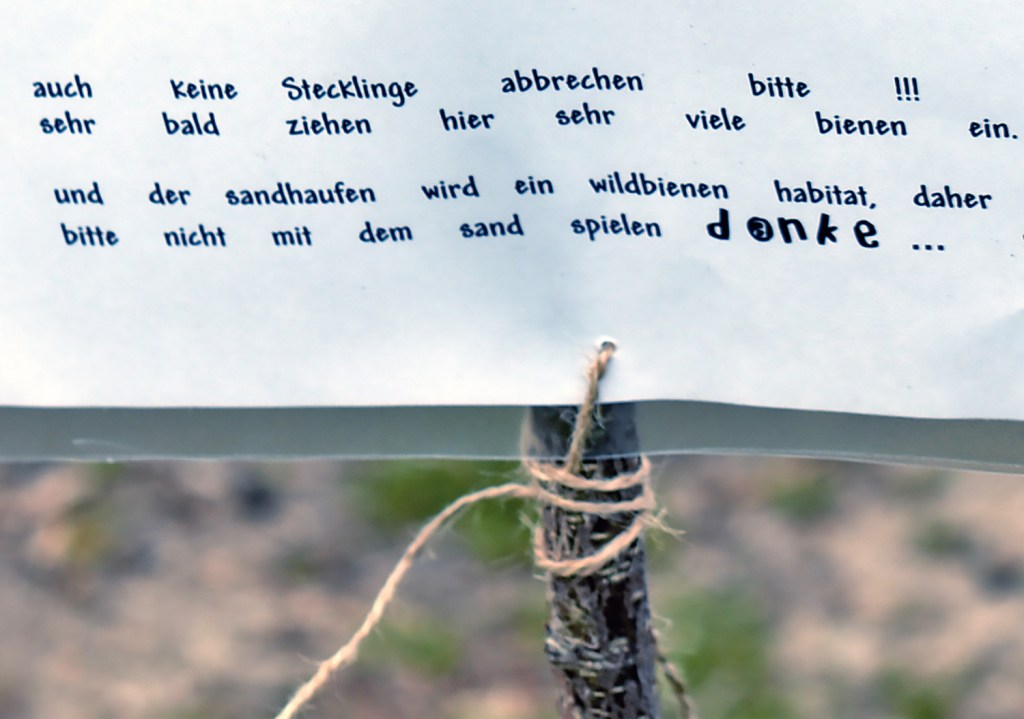 auch keine Stecklinge abbrechen bitte !!!
sehr bald ziehen hier sehr viele bienen ein.
und der sandhaufen wird ein wildbienen habitat, daher
bitte nicht mit dem sand spielen danke ...